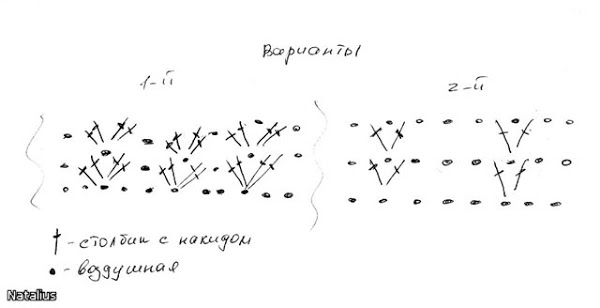 Варианты
1-й
2-й
- столбик с накидом
- воздушная
Natalius